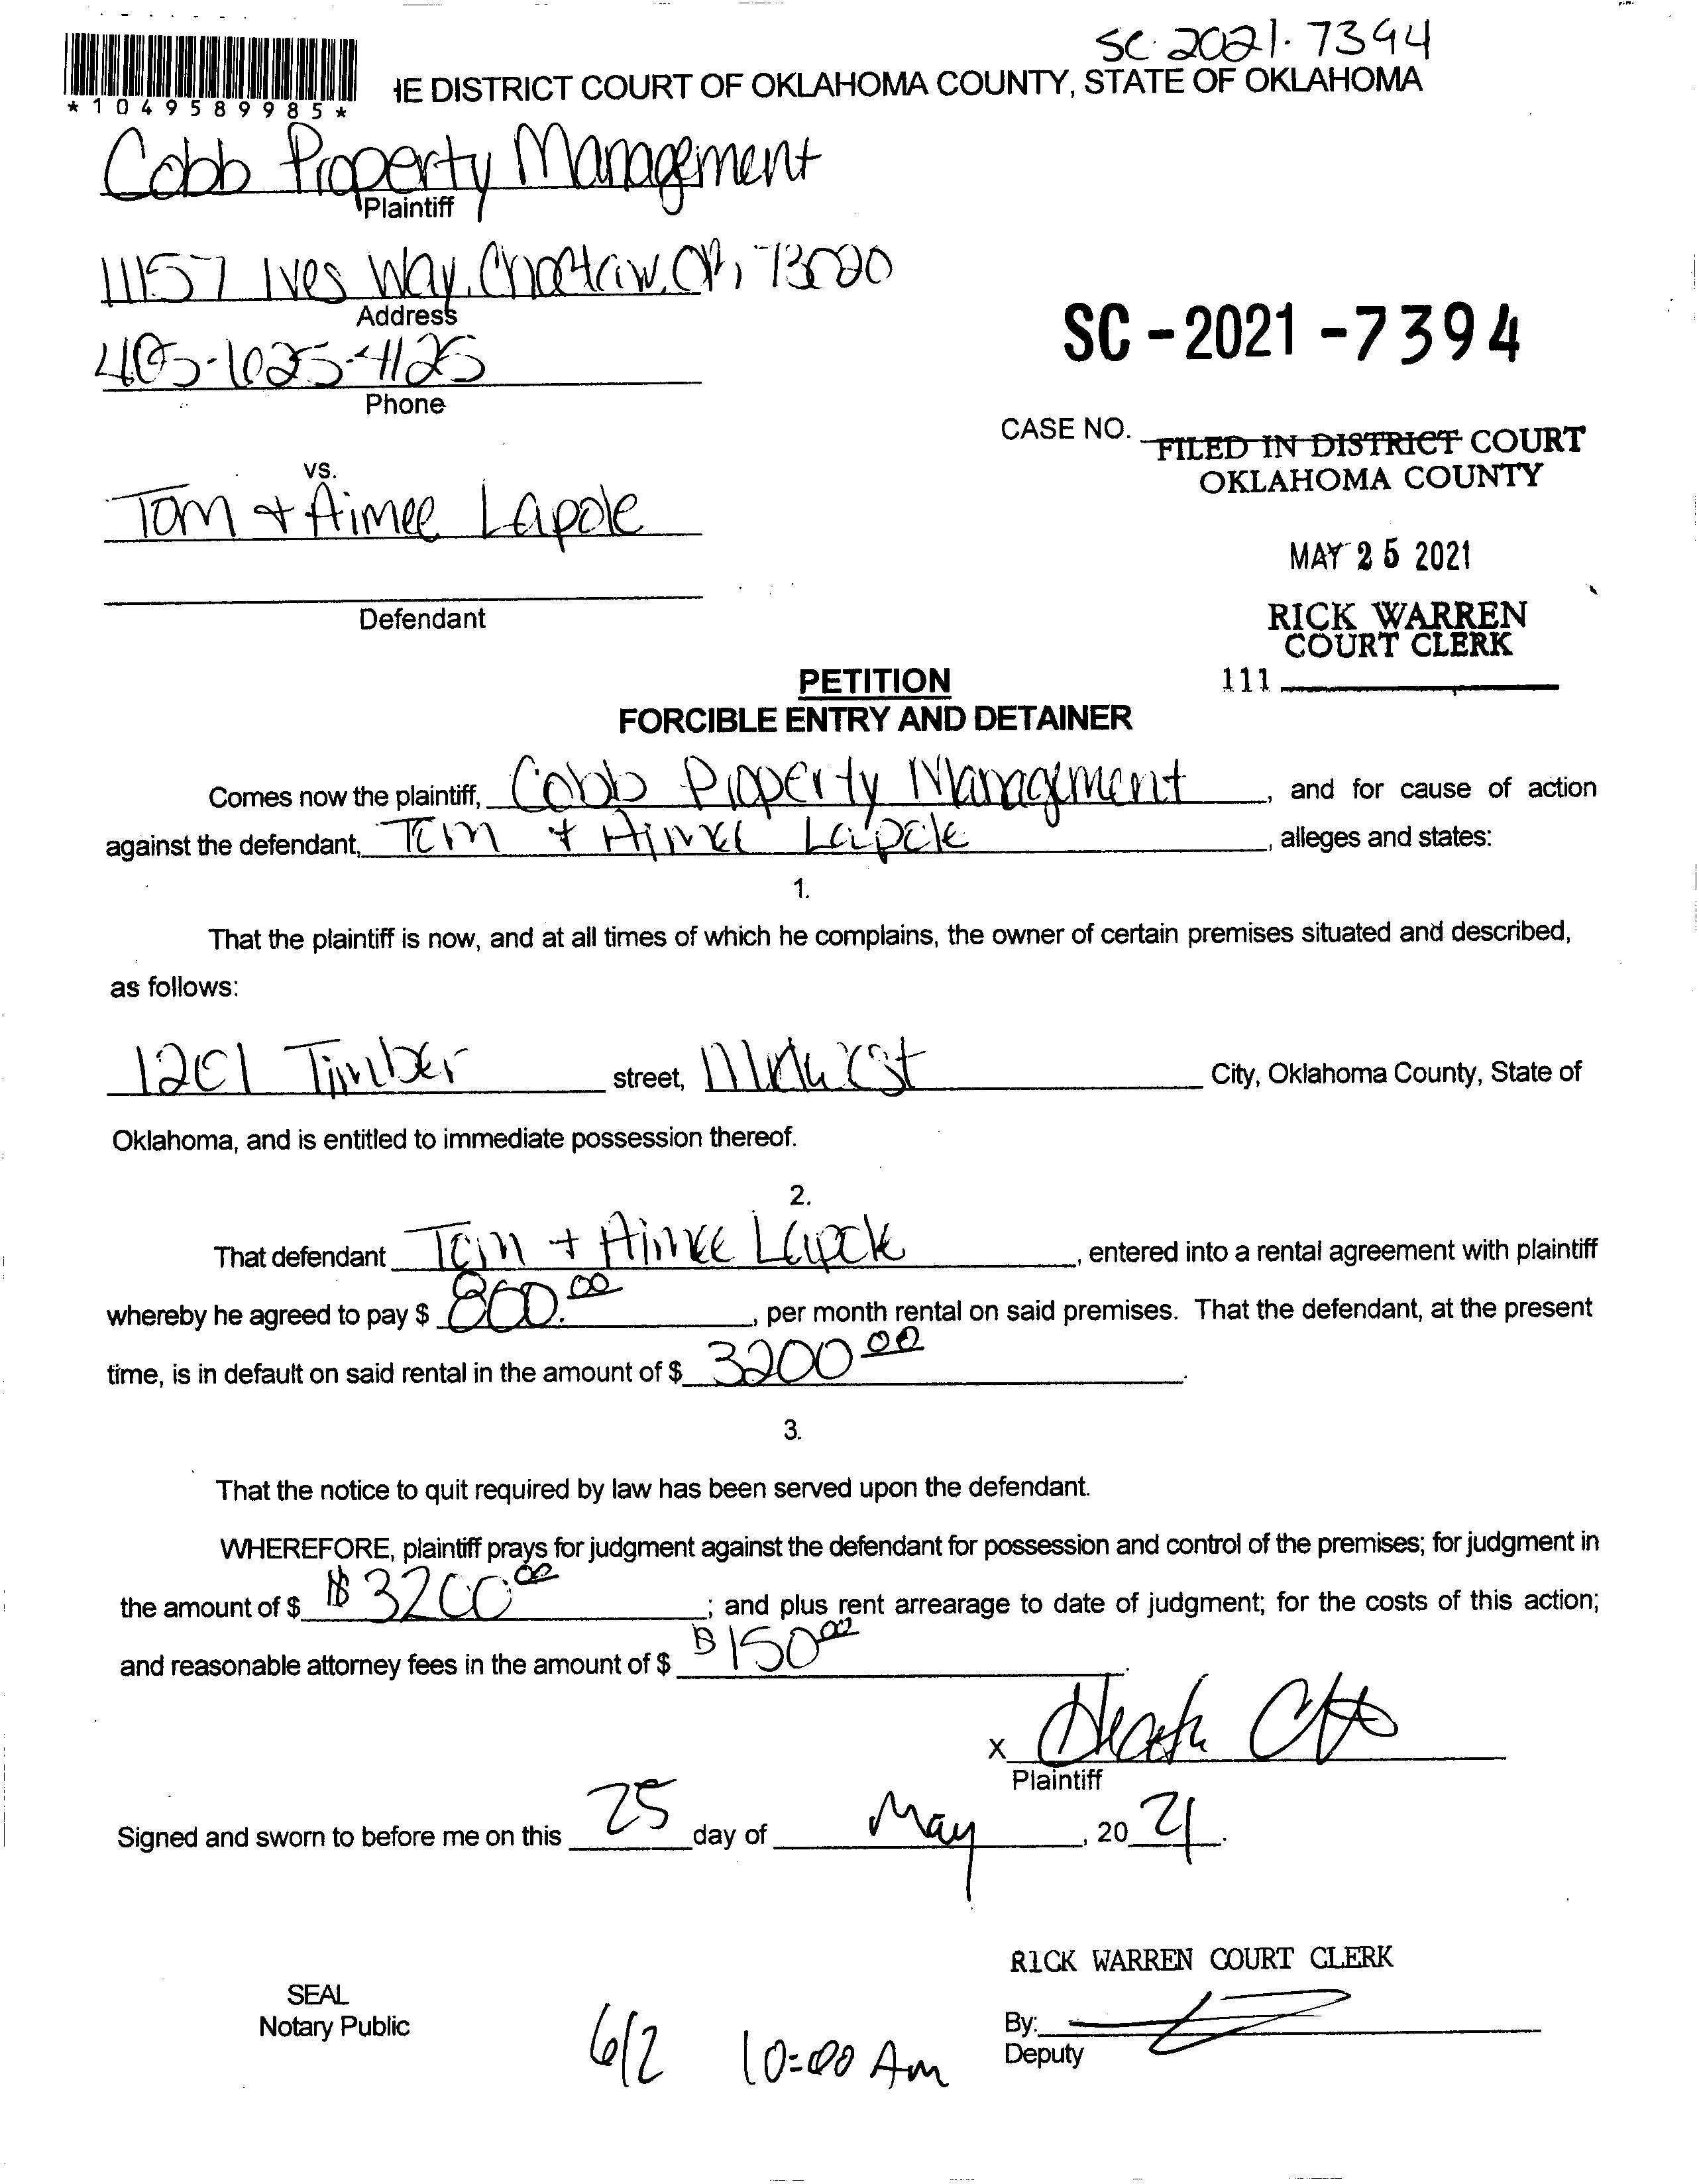 SC-2021-7394
*1049589985*
HE DISTRICT COURT OF OKLAHOMA COUNTY, STATE OF OKLAHOMA
Cobb Property Management
Plaintiff
11157 Ives Way, Choctaw, OK, 73020
Address
405-625-4125
Phone
SC-2021-7394
CASE NO.
FILED IN DISTRICT COURT
OKLAHOMA COUNTY
vs.
Tom + Aimee Lapole
MAY 25 2021
Defendant
RICK WARREN
COURT CLERK
111
PETITION
FORCIBLE ENTRY AND DETAINER
Comes now the plaintiff, Cobb Property Management, and for cause of action
against the defendant, Tom + Aimee Lapole, alleges and states:
1.
That the plaintiff is now, and at all times of which he complains, the owner of certain premises situated and described,
as follows:
1201 Timber street, Midwest City, Oklahoma County, State of
Oklahoma, and is entitled to immediate possession thereof.
2.
That defendant Tom + Aimee Lapole, entered into a rental agreement with plaintiff
whereby he agreed to pay $ 800.00, per month rental on said premises. That the defendant, at the present
time, is in default on said rental in the amount of $ 3200 00.
3.
That the notice to quit required by law has been served upon the defendant.
WHEREFORE, plaintiff prays for judgment against the defendant for possession and control of the premises; for judgment in
the amount of $ $3200 00; and plus rent arrearage to date of judgment; for the costs of this action;
and reasonable attorney fees in the amount of $ $150 00.
x
Plaintiff
Signed and sworn to before me on this 25 day of May, 20 21.
RICK WARREN COURT CLERK
SEAL
Notary Public
By:
Deputy
6/2 10:00 Am